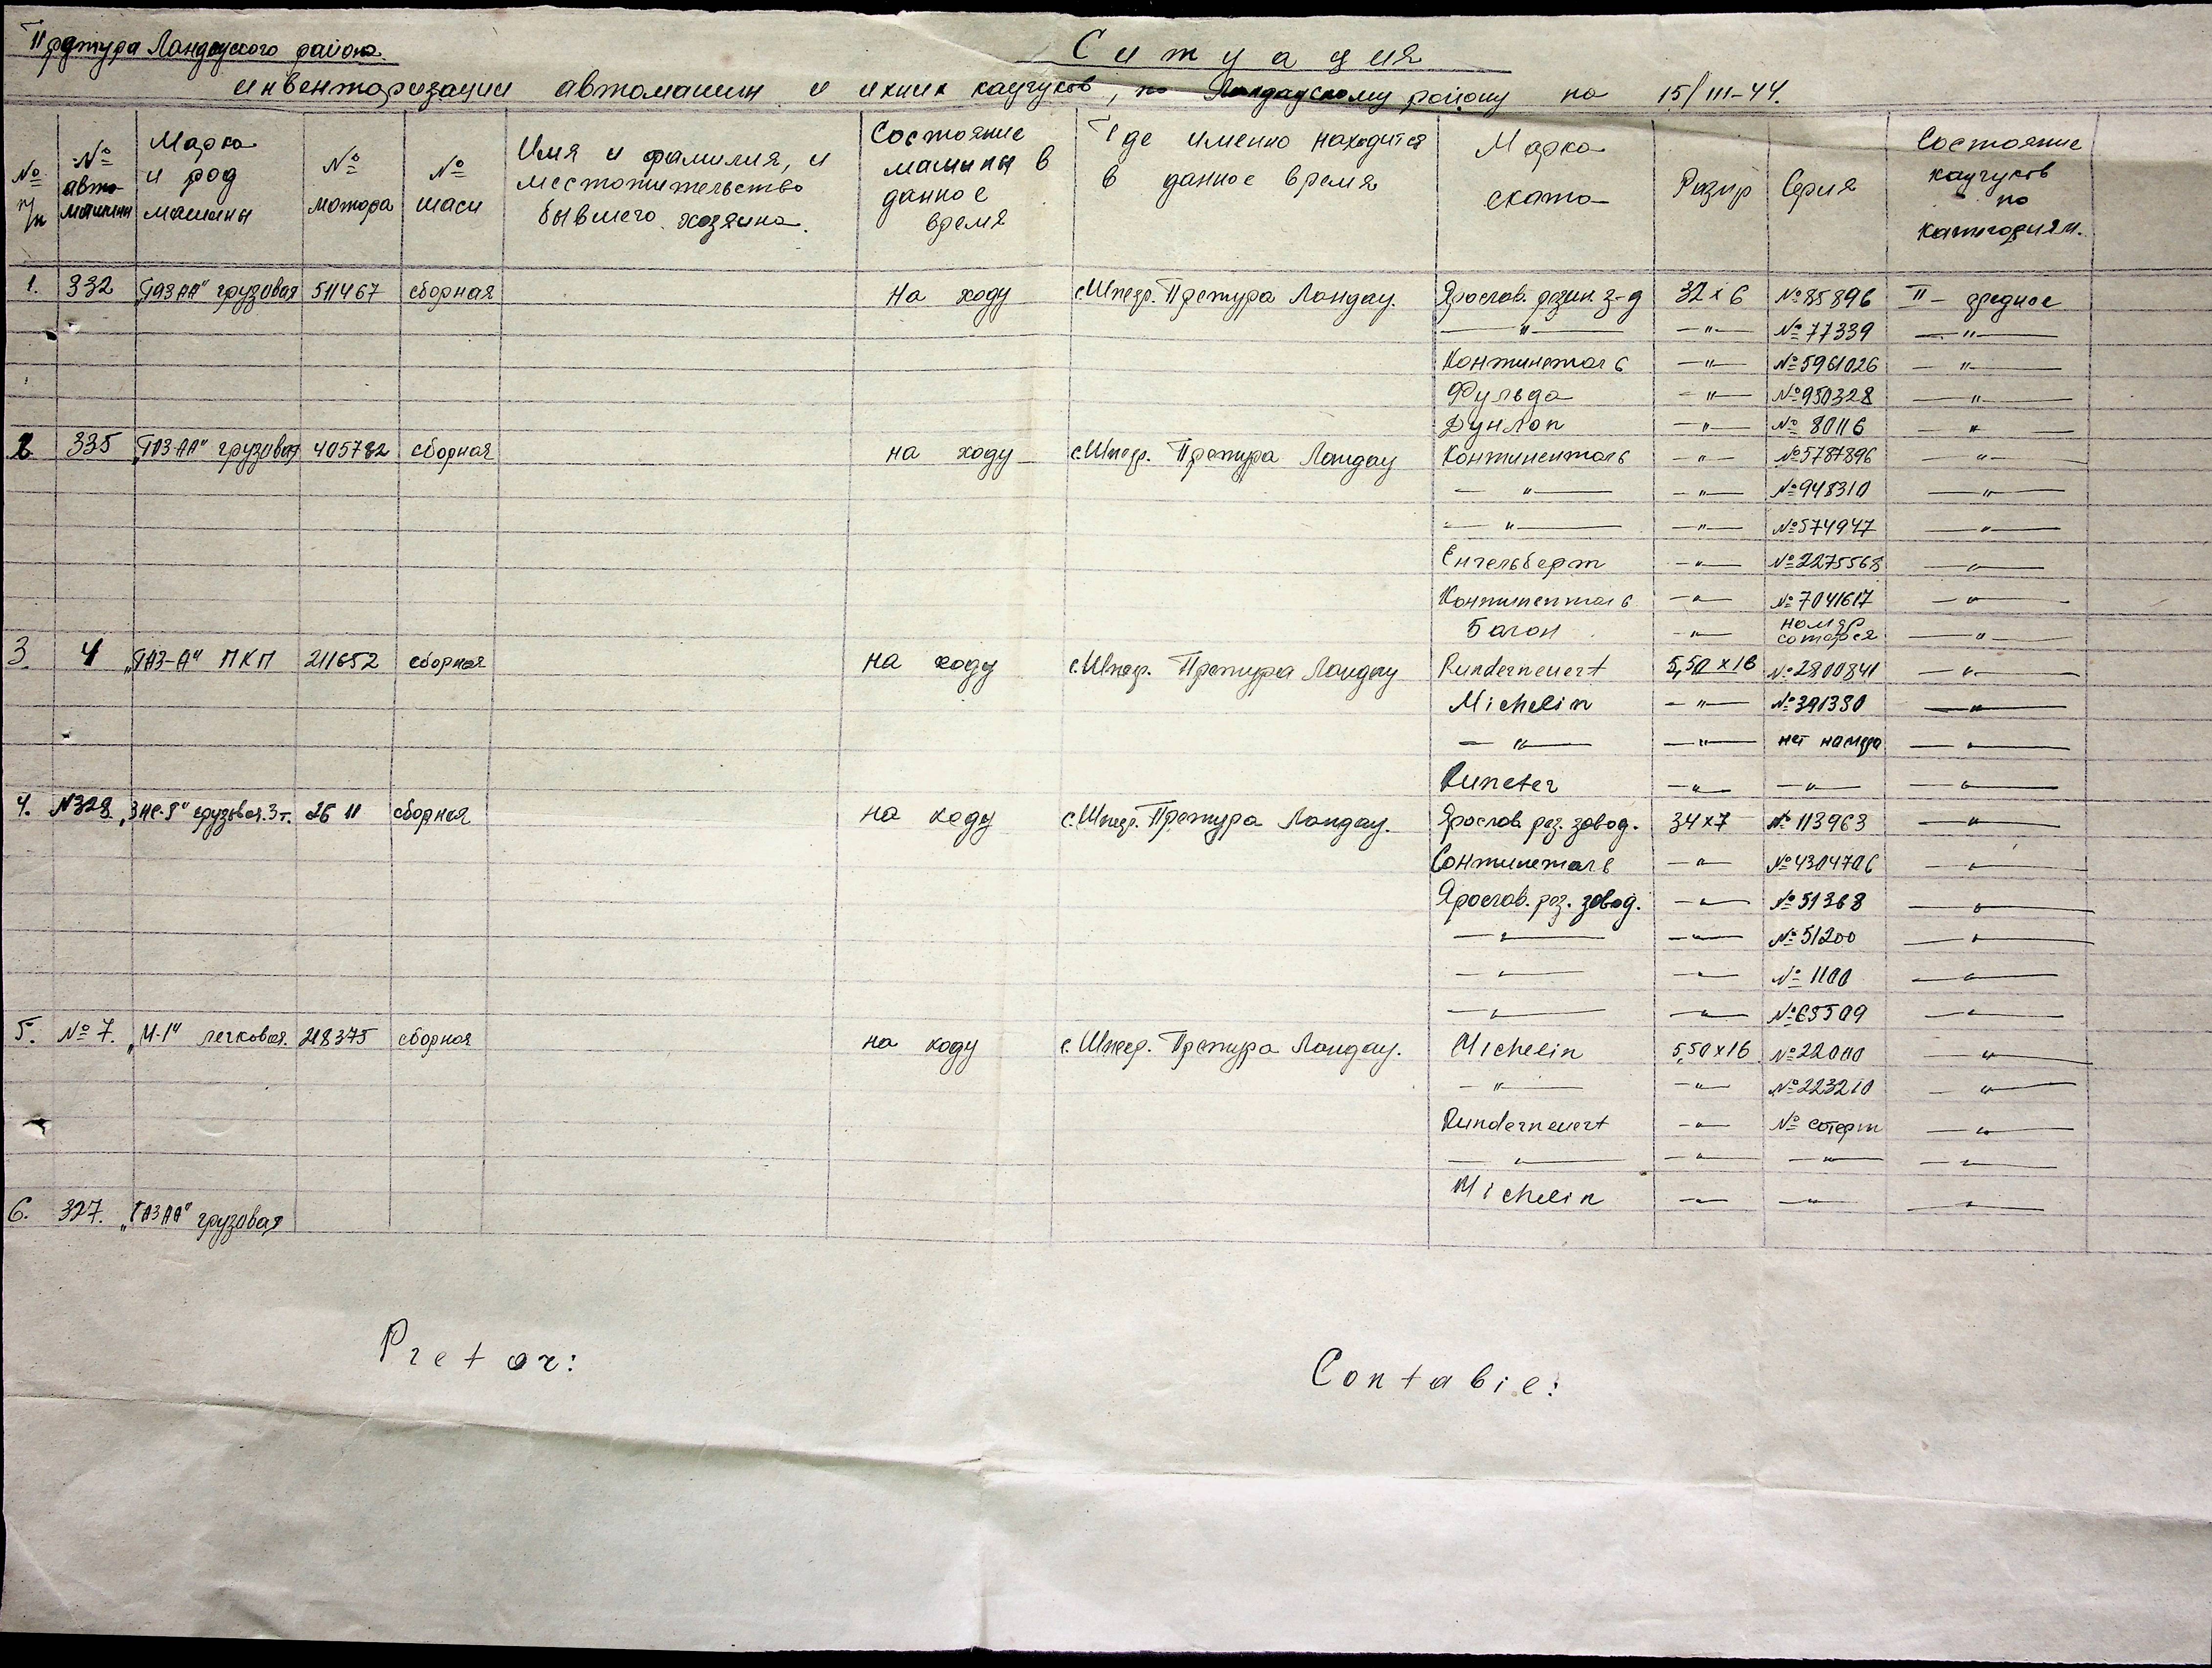 Претура Ландауского района.
Ситуация
инвентаризации автомашин и ихних каучуков, по Ландаускому району на 15/III-44.
№ п/п
№ авто машины
Марка и род машины
№ мотора
№ шаси
Имя и фамилия, и местожительство бывшего хозяина.
Состояние машины в данное время
Где именно находится в данное время
Марка ската
Размр
Серия
Состояние каучуков по категориям.
1. 332 „ГАЗАА" грузовая 511467 сборная На ходу с.Шпеер. Претура Ландау. Ярослав. резин. з-д 32x6 №85896 II - среднее
—"— —"— №77339 —"—
Континеталь —"— №5961026 —"—
Фульда —"— №950328 —"—
Дунлоп —"— № 80116 —"—
2 335 „ГАЗ-АА" грузовая 405782 сборная на ходу с.Шпеер. Претура Ландау Континенталь —"— №5787896 —"—
—"— —"— №948310 —"—
—"— —"— №574947 —"—
Енгельберт —"— №2275568 —"—
Континенталь —"— №7041617 —"—
Багон —"— номер сотерся —"—
3. 4 „ГАЗ-А" ПКП 211652 сборная на ходу с.Шпеер. Претура Ландау Runderneuert 5,50x16 №2800841 —"—
Michelin —"— №391380 —"—
—"— —"— нет номера —"—
Runeter —"— —"— —"—
4. №328. „ЗИС-5" грузовая.3т. 26 11 сборная на ходу с.Шпеер. Претура Ландау. Ярослав. рез. завод. 34x7 № 113963 —"—
Сонтинеталь —"— №4304706 —"—
Ярослав. рез. завод. —"— №51368 —"—
—"— —"— №51200 —"—
—"— —"— № 1100 —"—
—"— —"— №65509 —"—
5. №7. „М-1" легковая. 218375 сборная на ходу с.Шпеер. Претура Ландау. Michelin 5,50x16 №22000 —"—
—"— —"— №223210 —"—
Runderneuert —"— № сотерт —"—
—"— —"— —"— —"—
Michelin —"— —"— —"—
6. 327. „ГАЗАА" грузовая
Pretor:
Contabie: